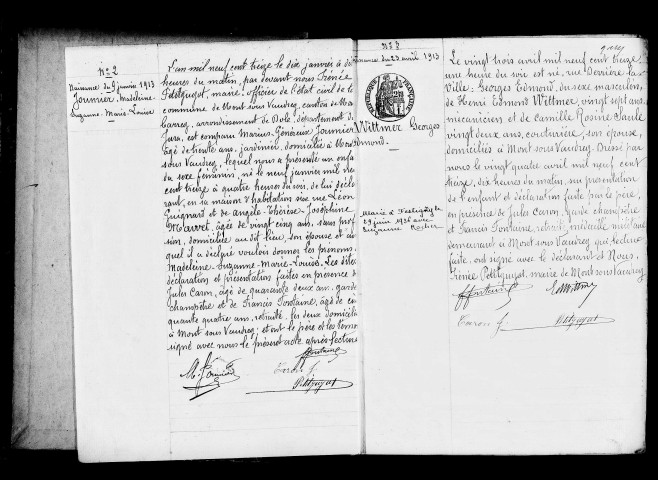 N° 2
Naissance du 9 janvier 1913
Journier, Madeleine
Suzanne-Marie-Louise
L'an mil neuf cent treize le dix janvier à dix
heures du matin, par devant nous Irénée
Petitguyot, maire, officier de l'état civil de la
commune de Mont-sous-Vaudrey, canton de Mont
barrey, arrondissement de Dole, département du
Jura, est comparu Marius-Généreux Journier
âgé de trente ans, jardinier, domicilié à Mont
sous Vaudrey, lequel nous a présenté un enfant
du sexe féminin, né le neuf janvier mil neuf
cent treize à quatre heures du soir, de lui décla
rant, en sa maison d'habitation sise rue Léon
Guignard et de Angele-Thérèse-Joséphine
âgée de vingt cinq ans, sans profes
sion, domiciliée au dit lieu, son épouse et au
quel il a déclaré vouloir donner les prénoms
Madeleine-Suzanne-Marie-Louise. Les dites
déclaration et présentation faites en présence de
Jules Caron, âgé de quarante deux ans, garde
champêtre et de Francis Fontaine, âgé de cin
quante quatre ans, retraité, les deux domiciliés
à Mont sous Vaudrey; et ont le père et les témoins
signé avec nous le présent acte après lecture
M. Journier
Fontaine
Caron J.
Petitguyot
N° 3
Naissance du 23 avril 1913
Wittmer Georges
Edmond.
Marié à
29 juin 1936 avec
Suzanne
Le vingt trois avril mil neuf cent treize
une heure du soir est né, rue Derrière la
Ville: Georges Edmond, du sexe masculin,
de Henri Edmond Wittmer, vingt sept ans
mécanicien et de Camille Rosine Saule
vingt deux ans, couturière, son épouse,
domiciliés à Mont sous Vaudrey. Dressé par
nous le vingt quatre avril mil neuf cent
treize, dix heures du matin, sur présentation
de l'enfant et déclaration faite par le père,
en présence de Jules Caron, garde champêtre
et Francis Fontaine, retraité, médaillé militaire
demeurant à Mont sous Vaudrey qui lecture
faite, ont signé avec le déclarant et Nous,
Irénée Petitguyot, maire de Mont sous Vaudrey
Fontaine
E. Wittmer
Caron J.
Petitguyot